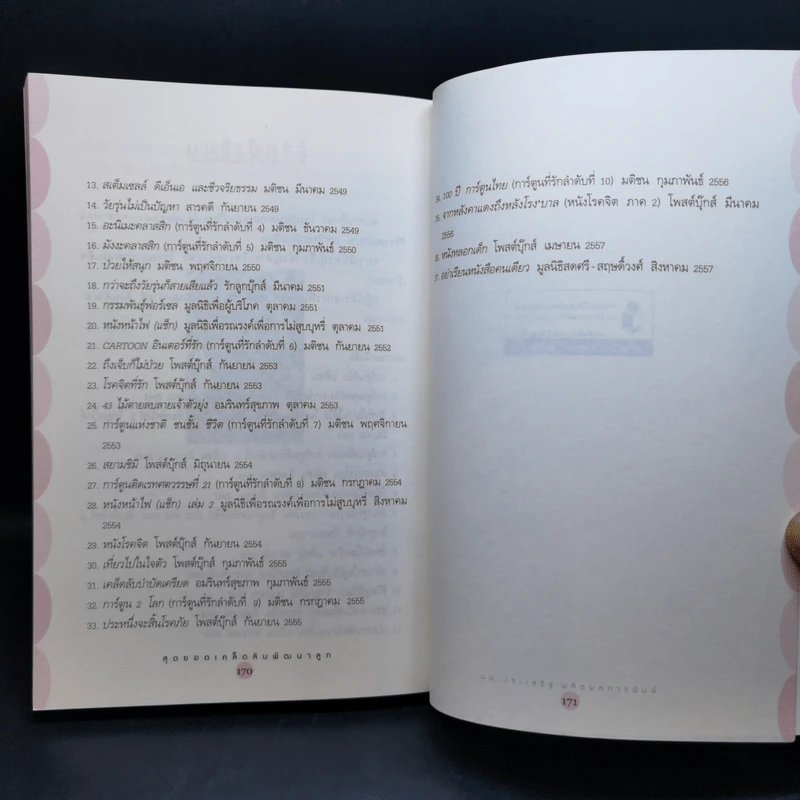 13. สเต็มเซลล์ ดีเอ็นเอ และชีวจริยธรรม มติชน มีนาคม 2549
14. วัยรุ่นไม่เป็นปัญหา สารคดี กันยายน 2549
15. อะนิเมะคลาสสิก (การ์ตูนที่รักลำดับที่ 4) มติชน ธันวาคม 2549
16. มังงะคลาสสิก (การ์ตูนที่รักลำดับที่ 5) มติชน กุมภาพันธ์ 2550
17. ป่วยให้สนุก มติชน พฤศจิกายน 2550
18. กว่าจะถึงวัยรุ่นก็สายเสียแล้ว รักลูกบุ๊กส์ มีนาคม 2551
19. กรรมพันธุ์ฟอร์เซล มูลนิธิเพื่อผู้บริโภค ตุลาคม 2551
20. หนังหน้าไฟ (แช็ก) มูลนิธิเพื่อรณรงค์เพื่อการไม่สูบบุหรี่ ตุลาคม 2551
21. CARTOON อินเตอร์ที่รัก (การ์ตูนที่รักลำดับที่ 6) มติชน กันยายน 2552
22. ถึงเจ็บก็ไม่ป่วย โพสต์บุ๊กส์ กันยายน 2553
23. โรคจิตที่รัก โพสต์บุ๊กส์ กันยายน 2553
24. 43 ไม้ตายลบลายเจ้าตัวยุ่ง อมรินทร์สุขภาพ ตุลาคม 2553
25. การ์ตูนแห่งชาติ ชนชั้น ชีวิต (การ์ตูนที่รักลำดับที่ 7) มติชน พฤศจิกายน
2553
26. สยามซิมิ โพสต์บุ๊กส์ มิถุนายน 2554
27. การ์ตูนติดเรทศตวรรษที่ 21 (การ์ตูนที่รักลำดับที่ 8) มติชน กรกฎาคม 2554
28. หนังหน้าไฟ (แช็ก) เล่ม 2 มูลนิธิเพื่อรณรงค์เพื่อการไม่สูบบุหรี่ สิงหาคม
2554
29. หนังโรคจิต โพสต์บุ๊กส์ กันยายน 2554
30. เที่ยวไปในใจตัว โพสต์บุ๊กส์ กุมภาพันธ์ 2555
31. เคล็ดลับบำบัดเครียด อมรินทร์สุขภาพ กุมภาพันธ์ 2555
32. การ์ตูน 2 โลก (การ์ตูนที่รักลำดับที่ 9) มติชน กรกฎาคม 2555
33. ประหนึ่งจะสิ้นโรคภัย โพสต์บุ๊กส์ กันยายน 2555
สุดยอดเคล็ดลับพัฒนาลูก
170
34. 100 ปี การ์ตูนไทย (การ์ตูนที่รักลำดับที่ 10) มติชน กุมภาพันธ์ 2556
35. จากหลังคาแดงถึงหลังโรง'บาล (หนังโรคจิต ภาค 2) โพสต์บุ๊กส์ มีนาคม
2556
36. หนังหลอกเด็ก โพสต์บุ๊กส์ เมษายน 2557
37. อย่าเรียนหนังสือคนเดียว มูลนิธิสดศรี-สฤษดิ์วงศ์ สิงหาคม 2557
นพ.ประเสริฐ ผลิตผลการพิมพ์
171